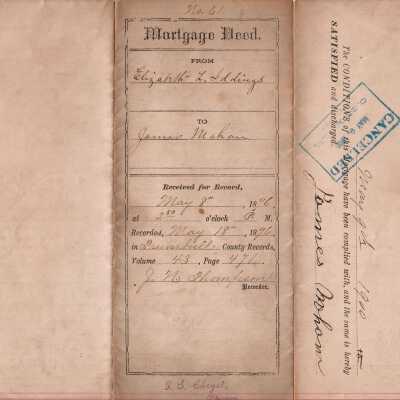 No. 61
Mortgage Deed.
FROM
Elizabeth L. Iddings
TO
James Mahan
Received for Record,
May 8th 1896
at 2 o'clock P. M.
Recorded, May 18th 1896
in Trumbull County Records,
Volume 43, Page 476
J. N. Thompson
Recorder.
The CONDITIONS of this Mortgage have been complied with, and the same is hereby
SATISFIED and discharged.
CANCELLED
May 9th 1900
James Mahan